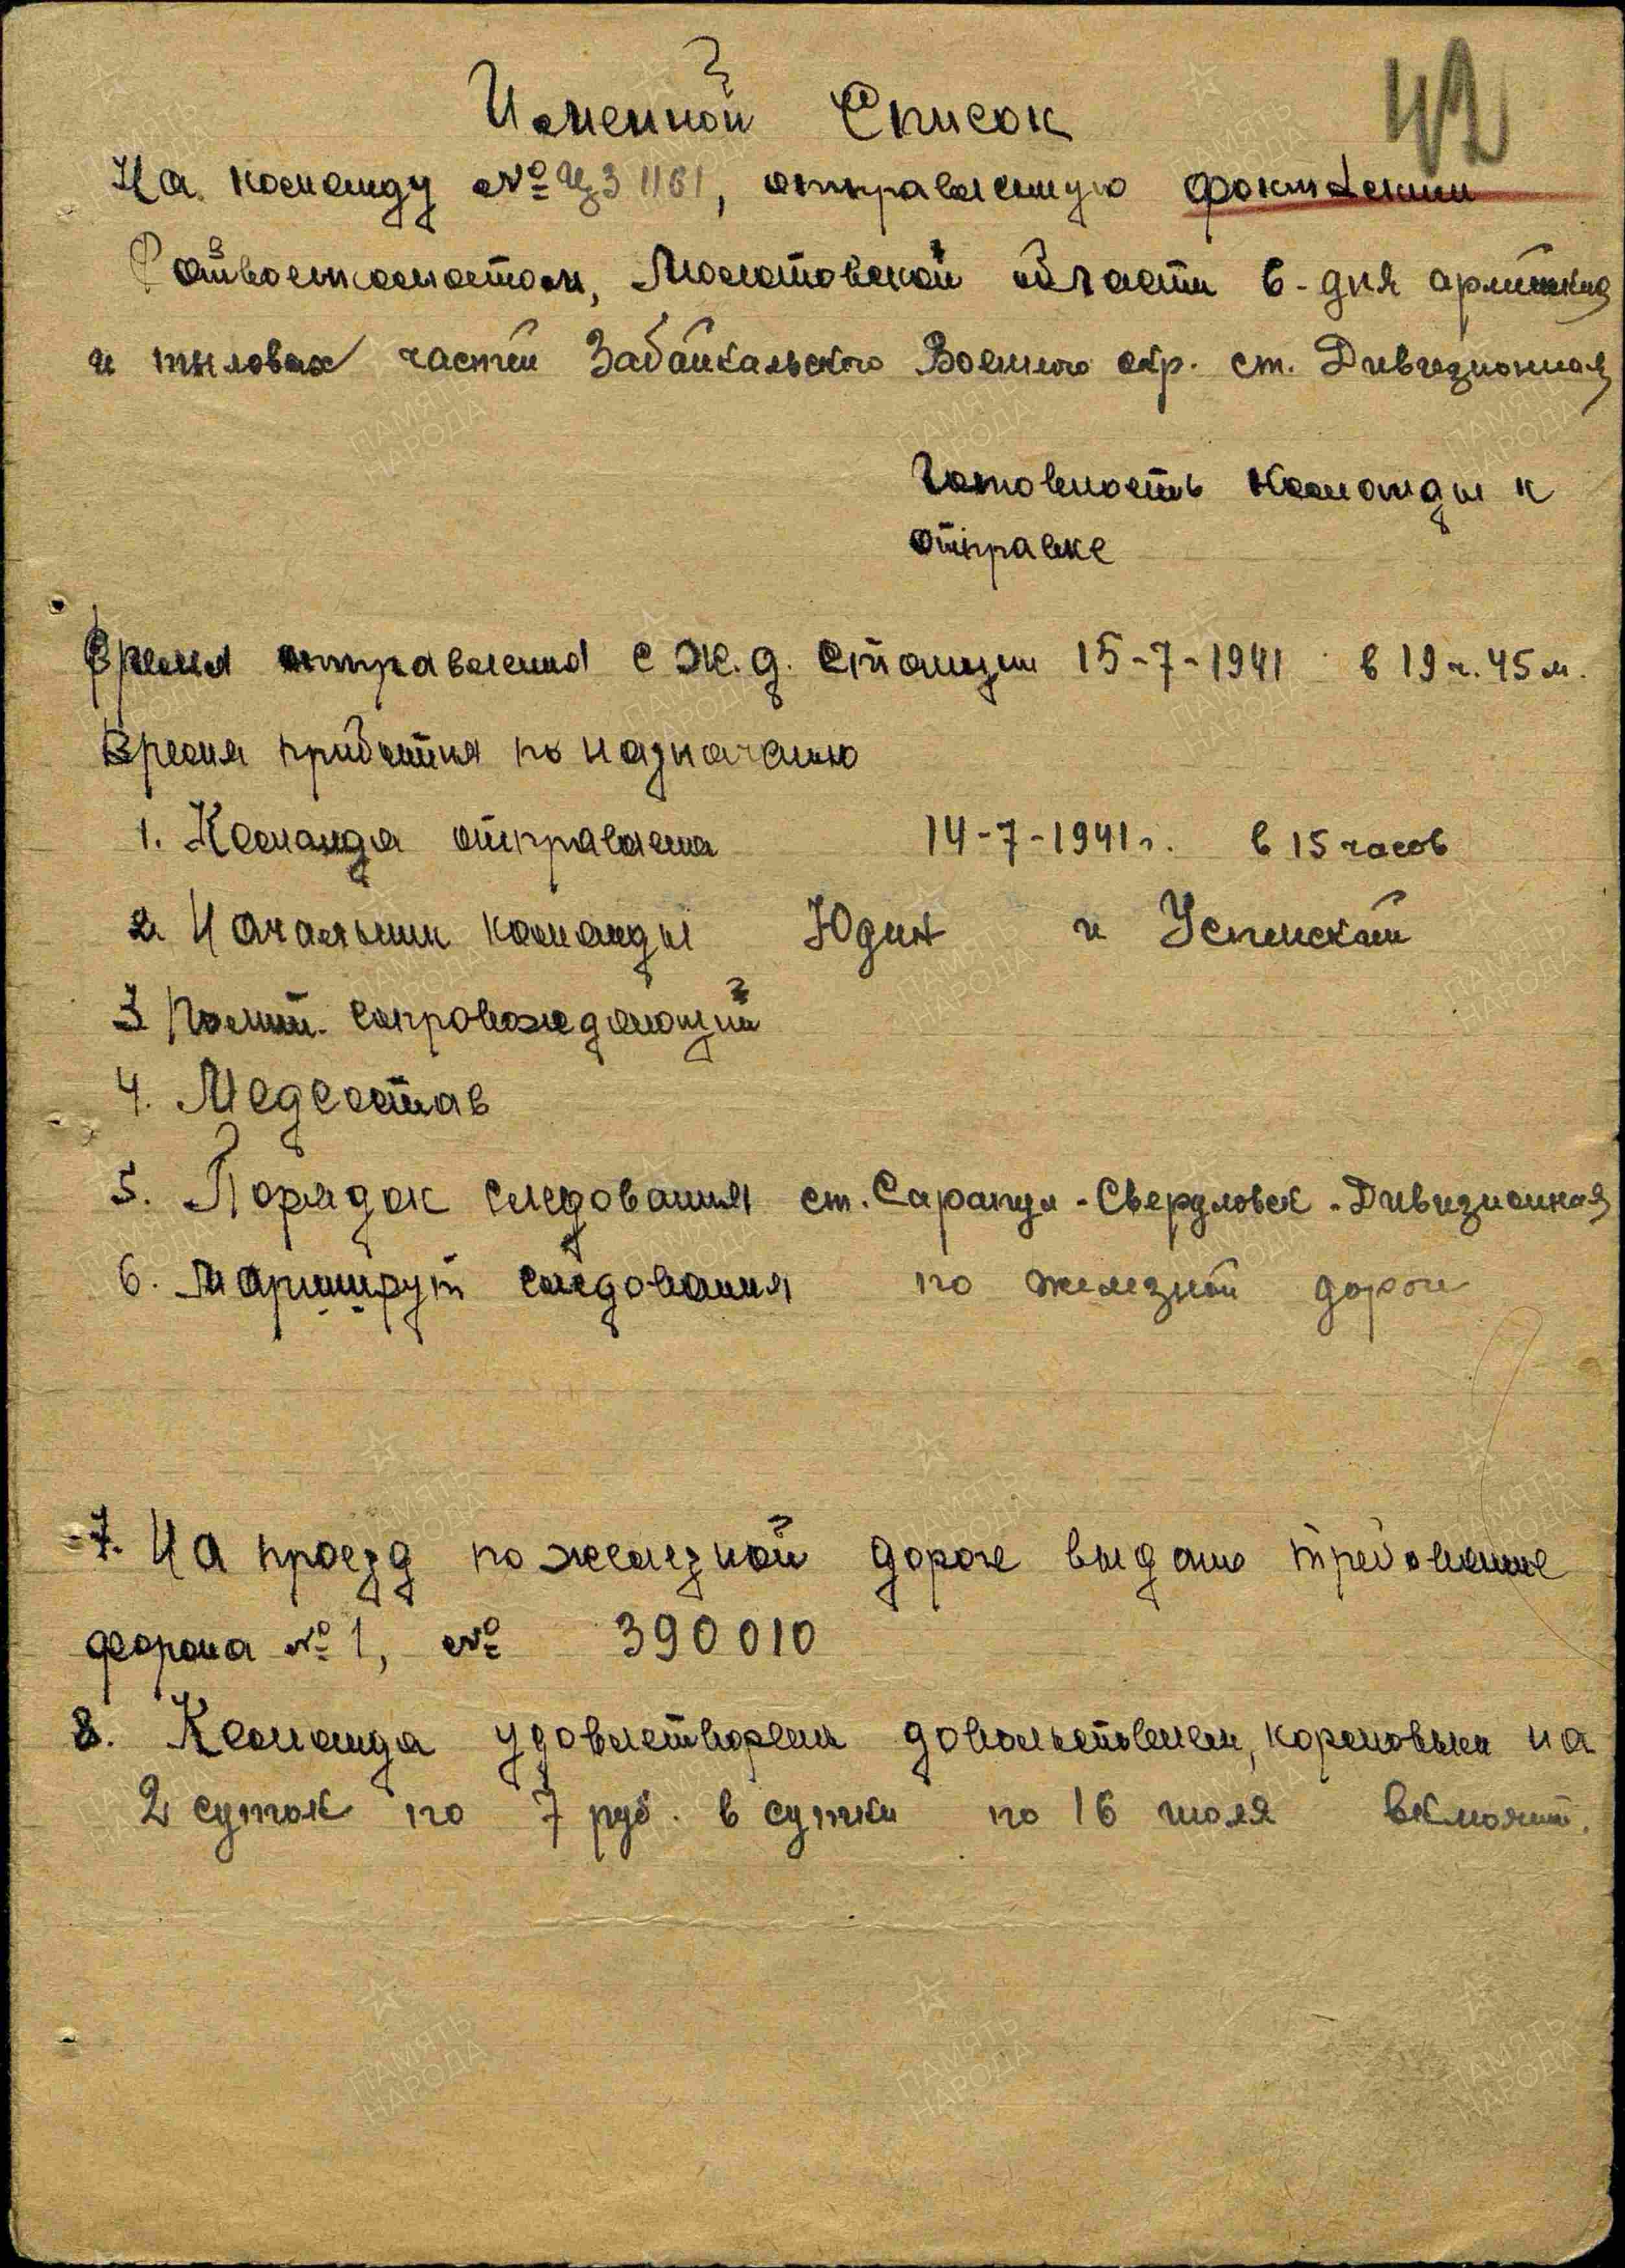 42
Именной Список
На команду № ЦЗ 1161, отправленную Фокинским
Райвоенкоматом, Молотовской области для армейских
и тыловых частей Забайкальского Военного окр. ст. Дивизионная
Готовность команды к
отправке
Время отправления с ж.д. станции 15-7-1941 в 19 ч. 45 м.
Время прибытия по назначению
1. Команда отправлена 14-7-1941 г. в 15 часов
2. Начальник команды Юдин и Успенский
3 Полит. сопровождающий
4. Медсостав
5. Порядок следования ст. Сарапул - Свердловск - Дивизионная
6. Маршрут следования по железной дороге
7. На проезд по железной дороге выдано требование
форма № 1, № 390010
8. Команда удовлетворен довольствием, кормовыми на
2 суток по 7 руб. в сутки по 16 июля включит.
ПАМЯТЬ НАРОДА